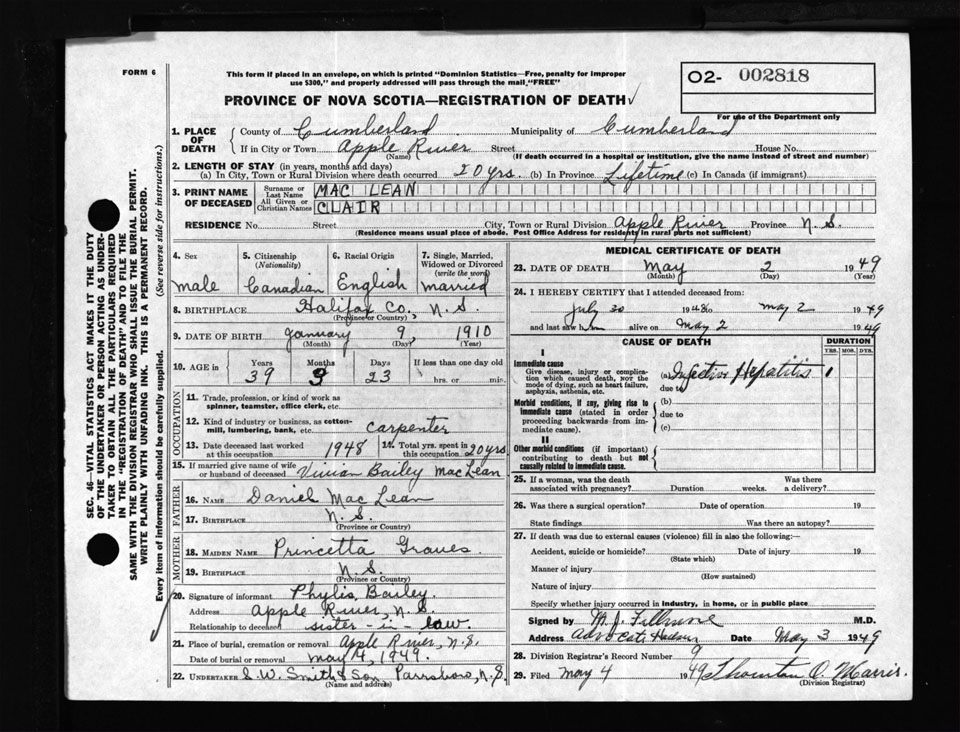 FORM 6
This form if placed in an envelope, on which is printed "Dominion Statistics—Free, penalty for improper
use $300," and properly addressed will pass through the mail, "FREE"
O2- 002818
For use of the Department only
PROVINCE OF NOVA SCOTIA—REGISTRATION OF DEATH
1. PLACE OF DEATH County of Cumberland Municipality of Cumberland
If in City or Town Apple River Street House No.
(Name) (If death occurred in a hospital or institution, give the name instead of street and number)
2. LENGTH OF STAY (in years, months and days)
(a) In City, Town or Rural Division where death occurred 20 yrs. (b) In Province Lifetime (c) In Canada (if immigrant)
3. PRINT NAME OF DECEASED Surname or Last Name MAC LEAN
All Given or Christian Names CLAIR
RESIDENCE No. Street City, Town or Rural Division Apple River Province N. S.
(Residence means usual place of abode. Post Office Address for residents in rural parts not sufficient)
4. Sex 5. Citizenship (Nationality) 6. Racial Origin 7. Single, Married, Widowed or Divorced (write the word)
male Canadian English married
8. BIRTHPLACE Halifax Co., N. S.
(Province or Country)
9. DATE OF BIRTH January 9 1910
(Month) (Day) (Year)
10. AGE in Years Months Days If less than one day old
39 3 23 hrs. or min.
OCCUPATION
11. Trade, profession, or kind of work as
spinner, teamster, office clerk, etc.
12. Kind of industry or business, as cotton-
mill, lumbering, bank, etc. carpenter
13. Date deceased last worked at this occupation 1948 14. Total yrs. spent in this occupation 20 yrs
15. If married give name of wife
or husband of deceased Vivian Bailey Mac Lean
FATHER
16. NAME Daniel Mac Lean
17. BIRTHPLACE N. S.
(Province or Country)
MOTHER
18. MAIDEN NAME Princetta Graves.
19. BIRTHPLACE N. S.
(Province or Country)
20. Signature of informant Phylis Bailey.
Address Apple River, N. S.
Relationship to deceased sister - in - law.
21. Place of burial, cremation or removal Apple River, N. S.
Date of burial or removal May 4, 1949.
22. UNDERTAKER S. W. Smith & Son, Parrsboro, N. S.
(Name and address)
MEDICAL CERTIFICATE OF DEATH
23. DATE OF DEATH May 2 1949
(Month) (Day) (Year)
24. I HEREBY CERTIFY that I attended deceased from:
July 30 1948 to May 2 1949
and last saw him alive on May 2 1949
CAUSE OF DEATH DURATION
YRS. MOS. DYS.
I
Immediate cause
Give disease, injury or complication which caused death, not the mode of dying, such as heart failure, asphyxia, asthenia, etc.
(a) Infective Hepatitis 1
due to
Morbid conditions, if any, giving rise to immediate cause (stated in order proceeding backwards from immediate cause).
(b)
due to
(c)
II
Other morbid conditions (if important) contributing to death but not causally related to immediate cause.
25. If a woman, was the death associated with pregnancy? Duration weeks. Was there a delivery?
26. Was there a surgical operation? Date of operation 19
State findings Was there an autopsy?
27. If death was due to external causes (violence) fill in also the following:—
Accident, suicide or homicide? Date of injury 19
(State which)
Manner of injury
(How sustained)
Nature of injury
Specify whether injury occurred in industry, in home, or in public place
Signed by M. J. Fillmore M.D.
Address Advocate Harbour Date May 3 1949
28. Division Registrar's Record Number 9
29. Filed May 4 1949 Thornton O. Morris.
(Division Registrar)
SEC. 46—VITAL STATISTICS ACT MAKES IT THE DUTY
OF THE UNDERTAKER OR PERSON ACTING AS UNDER-
TAKER TO OBTAIN ALL THE PARTICULARS REQUIRED
IN THE "REGISTRATION OF DEATH" AND TO FILE THE
SAME WITH THE DIVISION REGISTRAR WHO SHALL ISSUE THE BURIAL PERMIT.
WRITE PLAINLY WITH UNFADING INK. THIS IS A PERMANENT RECORD.
Every item of information should be carefully supplied. (See reverse side for instructions.)